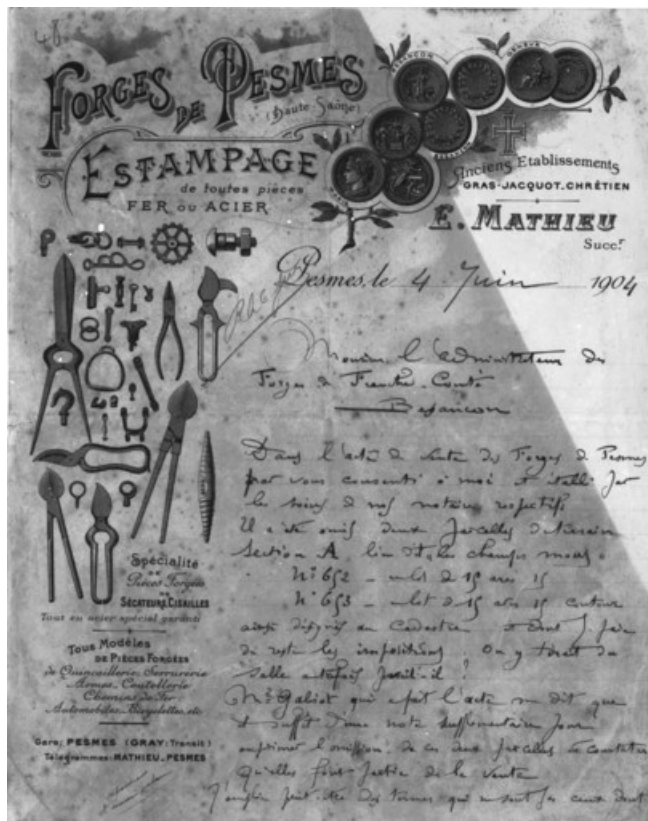 48
FORGES DE PESMES
(Haute-Saône)
ESTAMPAGE
de toutes pièces
FER OU ACIER
BESANÇON
Anciens Etablissements
GRAS-JACQUOT.CHRÉTIEN
E. MATHIEU
Succ.r
Pesmes, le 4 Juin 1904
Monsieur l'administrateur des
Forges de Franche-Comté
Besançon
Dans l'acte de vente des Forges de Pesmes
par vous consenti à moi et établi par
les soins de nos notaires respectifs
Il a été omis deux parcelles de terrain
Section A lieu dit, les champs
N° 652 - de 15 ares 15
N° 653 - de 15 ares 15 centiares
ainsi désignées au Cadastre et dont
les impositions. On y
sable autrefois paraît-il
Me Galiot qui a fait l'acte me dit que
suffit d'une note supplémentaire pour
l'omission de ces deux parcelles
qu'elles font partie de la vente
J'emploie peut-être des termes qui ne sont pas ceux dont
Spécialité
DE
Pièces Forgées
DE
SÉCATEURS, CISAILLES
Tout en acier spécial garanti
TOUS MODÈLES
DE PIÈCES FORGÉES
de Quincaillerie, Serrurerie
Armes, Coutellerie
Chemins de Fer
Automobiles, Bicyclettes, etc.
Gare: PESMES (GRAY: Transit)
Télégrammes: MATHIEU_PESMES